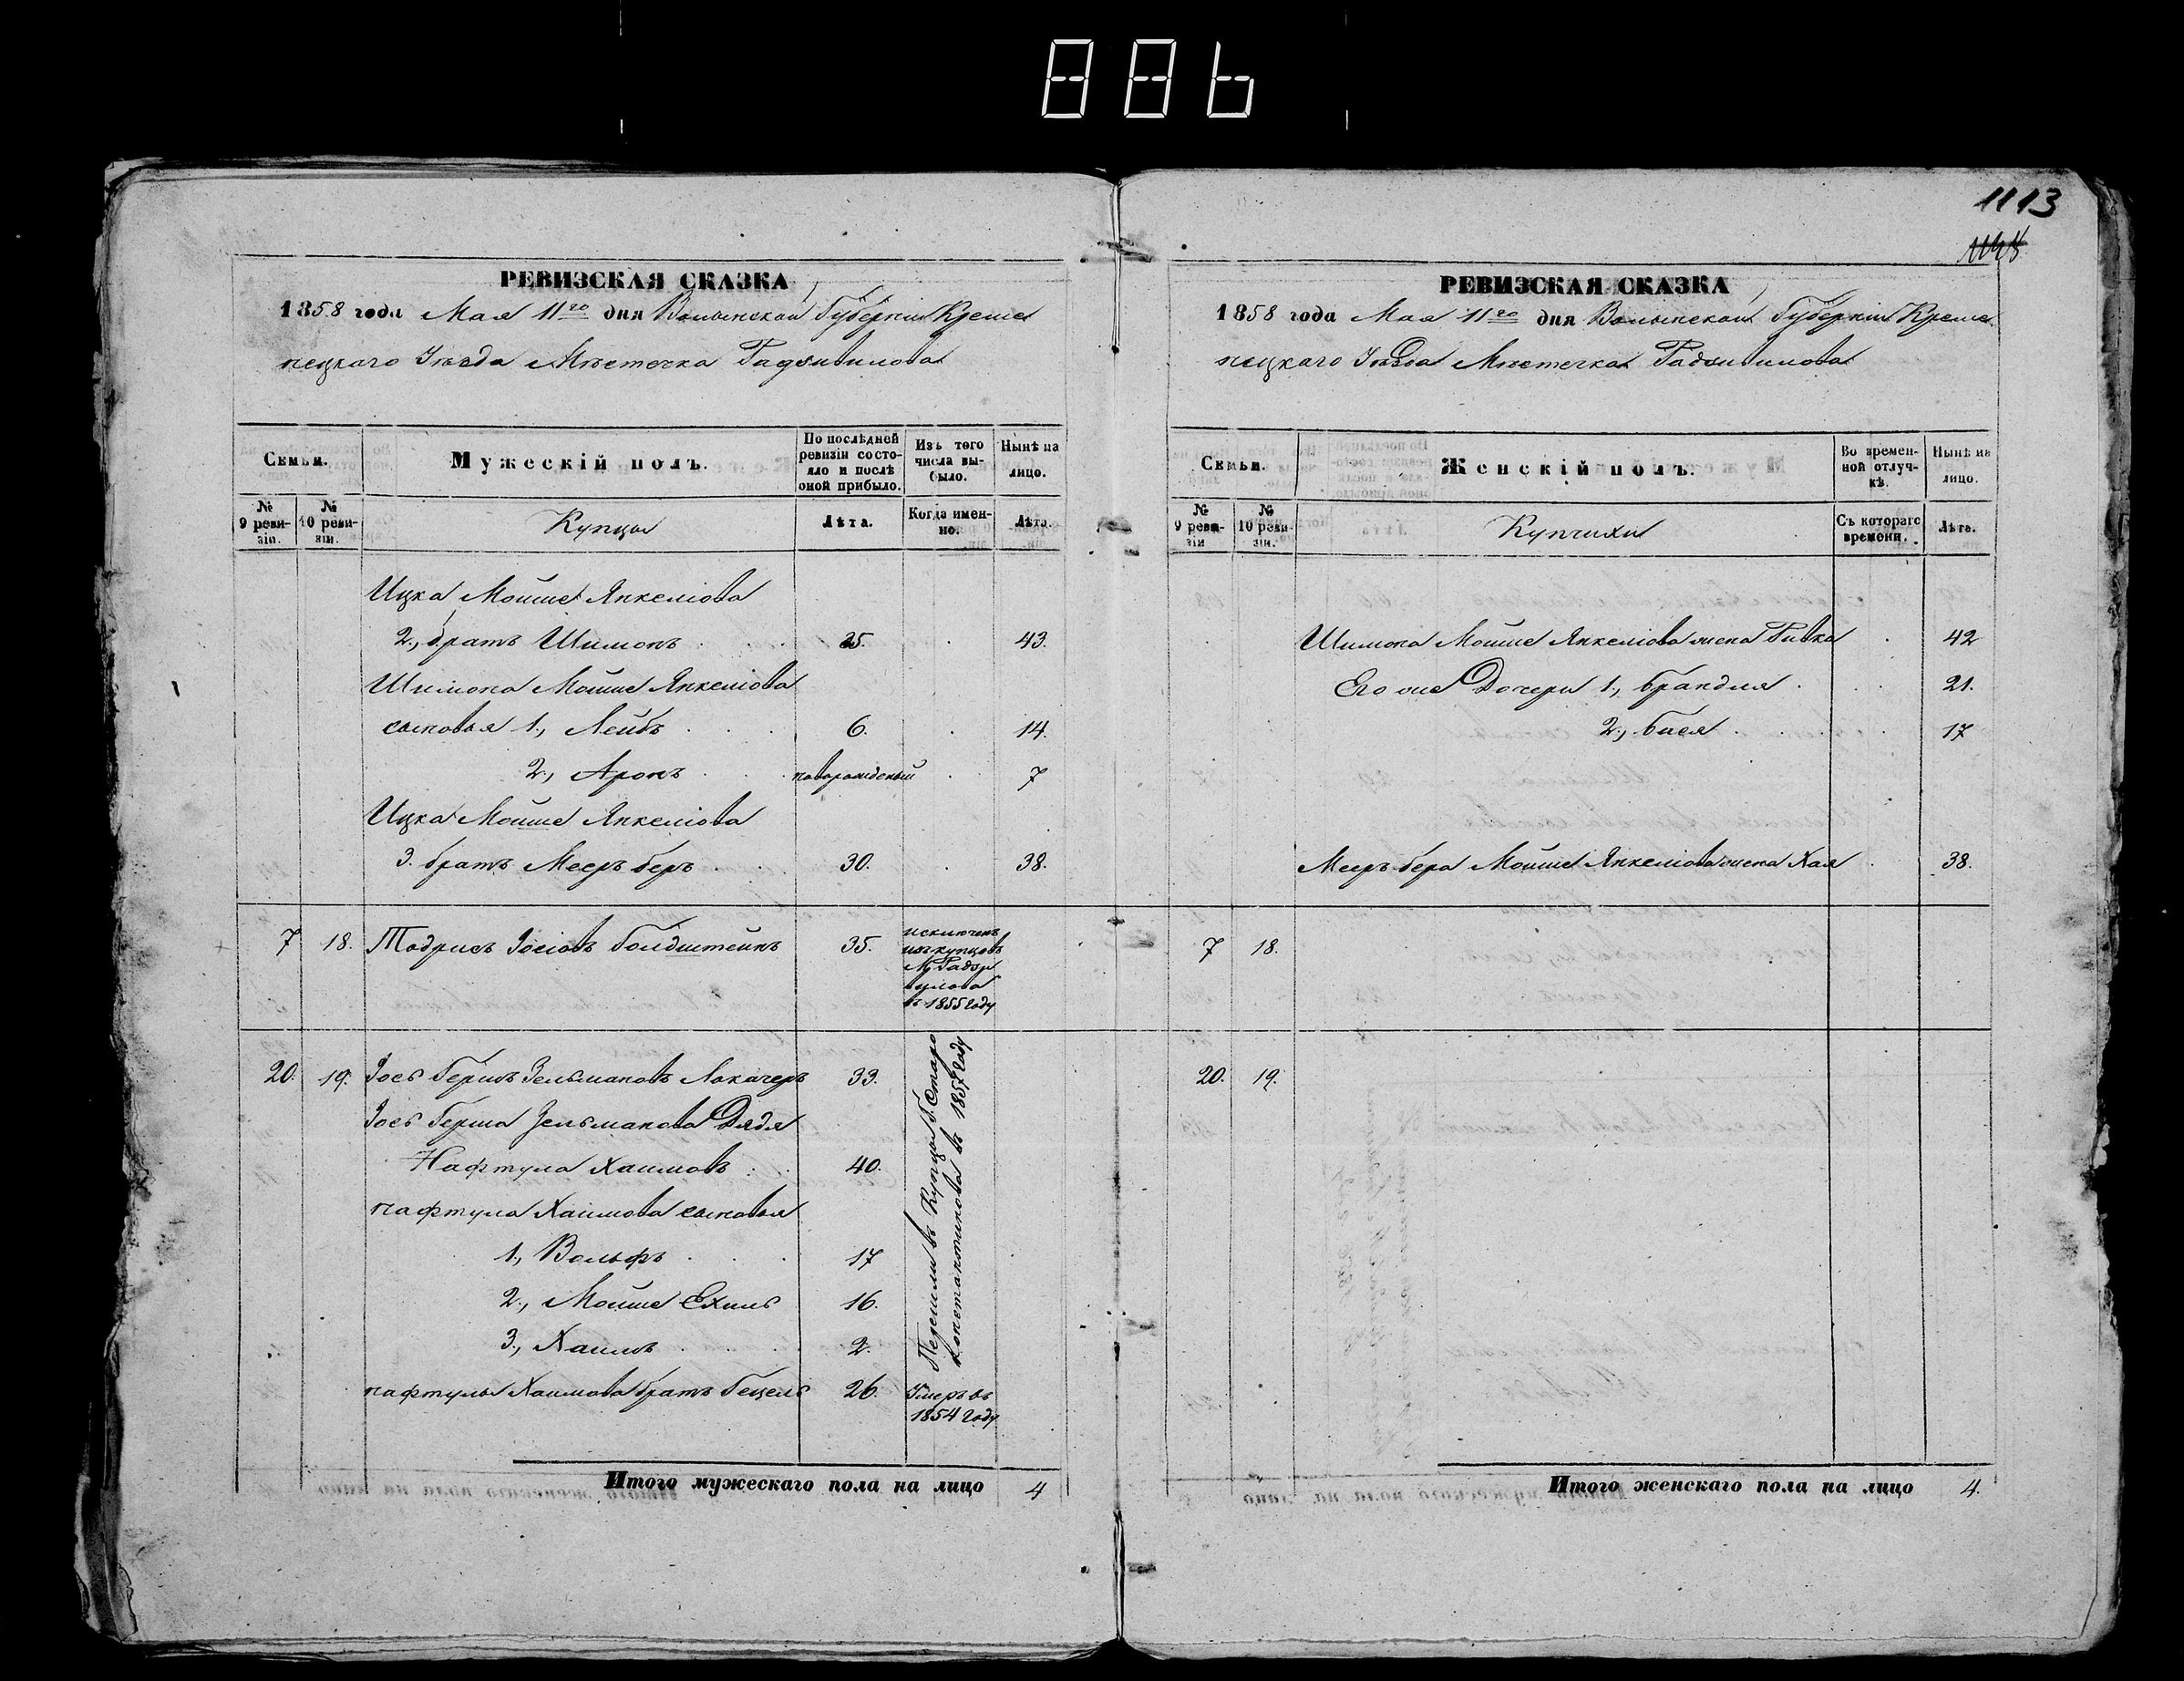 886
1113
РЕВИЗСКАЯ СКАЗКА
1858 года Мая 11го дня Волынской Губерніи Креме
нецкаго Уѣзда Мѣстечка Радзивилова
Семьи.
Мужескій полъ.
По послѣдней ревизіи состояло и послѣ оной прибыло.
Изъ того числа выбыло.
Нынѣ на лицо.
№ 9 ревизіи.
№ 10 ревизіи.
Купцы
Лѣта.
Когда именно.
Лѣта.
Ицка Мойше Янкеліова
2., братъ Шимонъ 35. 43.
Шимона Мойше Янкеліова
сыновья 1., Лейбъ 6. 14.
2., Аронъ новорожденый 7
Ицка Мойше Янкеліова
3. братъ Мееръ беръ 30. 38.
7 18. Іосіовъ Голдштейнъ 35. исключенъ
изъ купцовъ
М. Радзи
вилова
въ 1855 году
20. 19. Іось Гершъ Зельмановъ Локачеръ 33.
Іось Герша Зельманова Дядя
Нафтула Хаимовъ 40.
Нафтула Хаимова сыновья
1., Вольфъ 17
2., Мойше Ехиль 16.
3., Хаимъ 2.
Перешли въ Купцы Г. Старо
константинова въ 1857 году
нафтулы Хаимова братъ Гецель 26. Умеръ въ
1854 году
Итого мужескаго пола на лицо 4
РЕВИЗСКАЯ СКАЗКА
1858 года Мая 11го дня Волынской Губерніи Креме
нецкаго Уѣзда Мѣстечка Радзивилова
Семьи.
Женскій полъ.
Во временной отлучкѣ.
Нынѣ на лицо.
№ 9 ревизіи
№ 10 ревизіи.
Купчихи
Съ котораго времени.
Лѣта.
Шимона Мойше Янкеліова жена Ривка 42
Его же Дочери 1., Брандля 21.
2., Бася 17
Мееръ бера Мойше Янкеліова жена Хая 38.
7 18.
20. 19.
Итого женскаго пола на лицо 4.